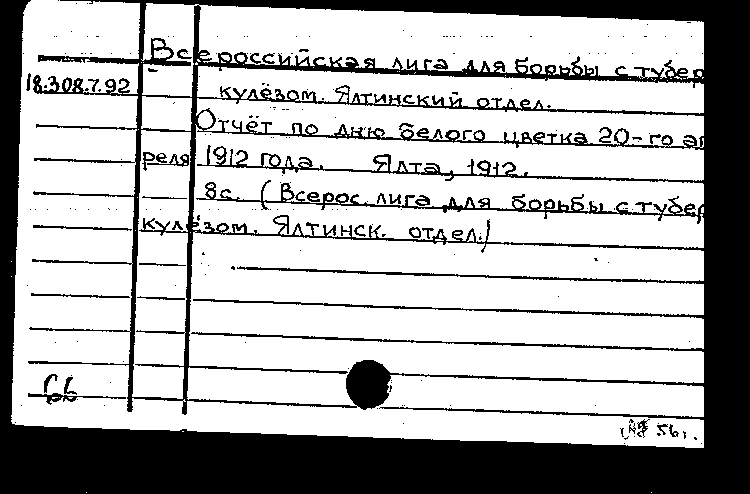 Всероссийская лига для борьбы с тубер
18.308.7.92 кулёзом. Ялтинский отдел.
Отчёт по дню белого цветка 20-го ап
реля 1912 года. Ялта, 1912.
8с. (Всерос. лига для борьбы с тубер
кулёзом. Ялтинск. отдел.)
56г.